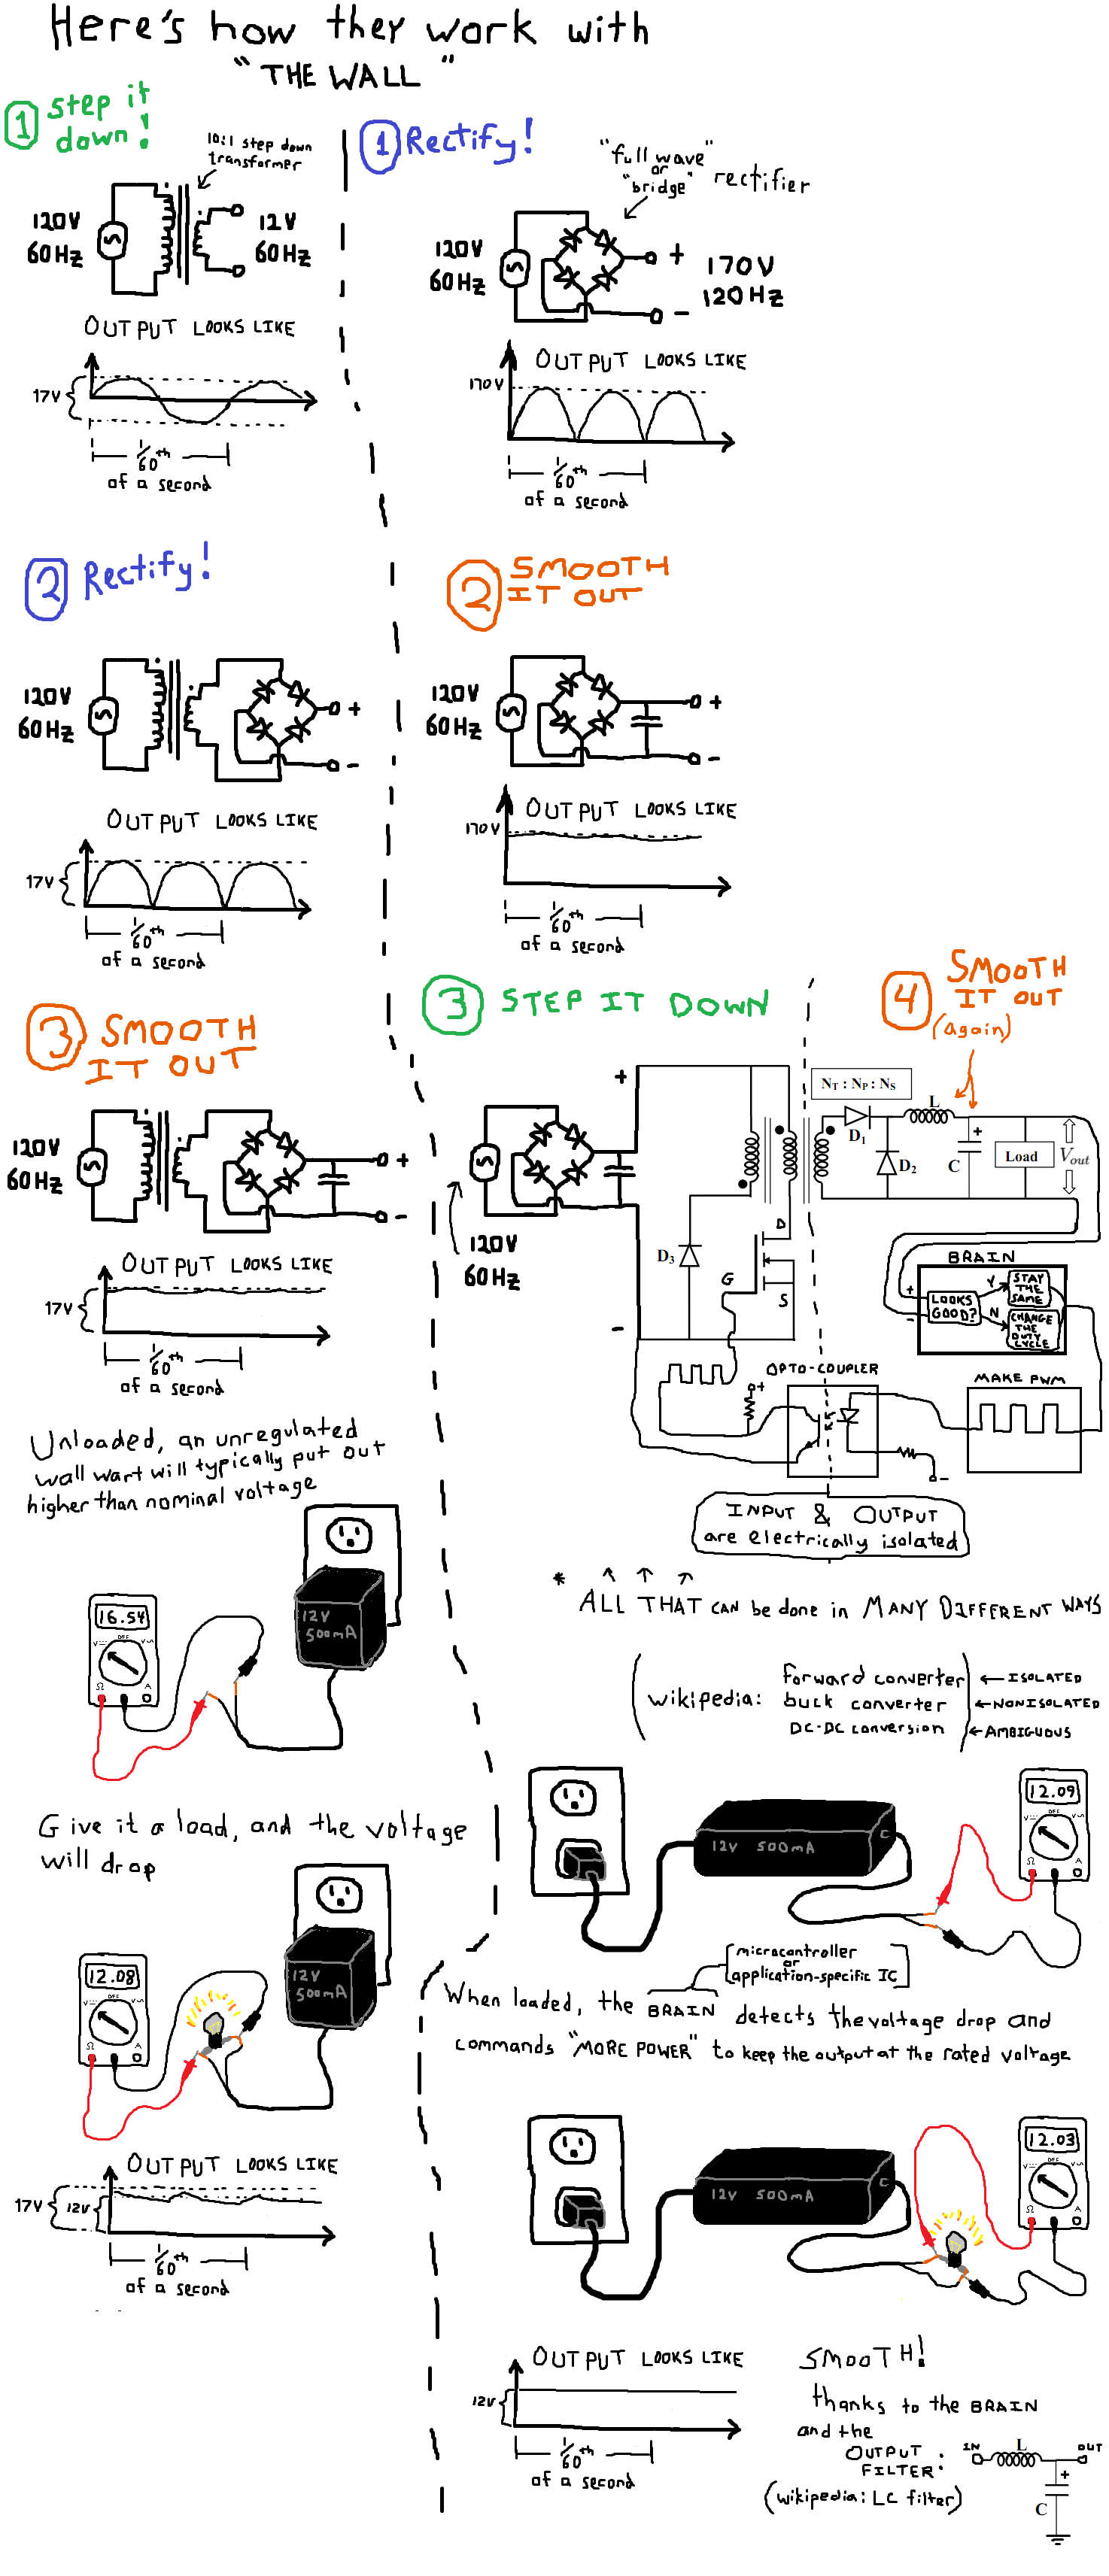 Here's how they work with
"THE WALL"
1 Step it down!
10:1 step down
transformer
120V
60Hz
12V
60Hz
OUTPUT LOOKS LIKE
17V
1/60th
of a second
2 Rectify!
120V
60Hz
+
-
OUTPUT LOOKS LIKE
17V
1/60th
of a second
3 SMOOTH
IT OUT
120V
60Hz
+
-
OUTPUT LOOKS LIKE
17V
1/60th
of a second
Unloaded, an unregulated
wall wart will typically put out
higher than nominal voltage
16.54
OFF
V
V
Ω
A
12V
500mA
Give it a load, and the voltage
will drop
12.08
OFF
V
V
Ω
A
12V
500mA
OUTPUT LOOKS LIKE
17V
12V
1/60th
of a second
1 Rectify!
"full wave"
or
"bridge" rectifier
120V
60Hz
+
-
170V
120Hz
OUTPUT LOOKS LIKE
170V
1/60th
of a second
2 SMOOTH
IT OUT
120V
60Hz
+
-
OUTPUT LOOKS LIKE
170V
1/60th
of a second
3 STEP IT DOWN
4 SMOOTH
IT OUT
(again)
+
-
120V
60Hz
NT : NP : NS
D1
L
D2
+
C
Load
Vout
D3
D
G
S
BRAIN
+
-
LOOKS
GOOD?
Y
STAY
THE
SAME
N
CHANGE
THE
DUTY
CYCLE
OPTO-COUPLER
+
-
MAKE PWM
INPUT & OUTPUT
are electrically isolated
* ↑ ↑ ↑
ALL THAT can be done in MANY DIFFERENT WAYS
(wikipedia: forward converter) ← ISOLATED
buck converter ← NONISOLATED
DC-DC conversion ← AMBIGUOUS
12V 500mA
12.09
OFF
V
V
Ω
A
[microcontroller
or
application-specific IC]
When loaded, the BRAIN detects the voltage drop and
commands "MORE POWER" to keep the output at the rated voltage
12V 500mA
12.03
OFF
V
V
Ω
A
OUTPUT LOOKS LIKE
12V
1/60th
of a second
SMOOTH!
thanks to the BRAIN
and the
OUTPUT
FILTER:
(wikipedia: LC filter)
IN
L
OUT
+
C